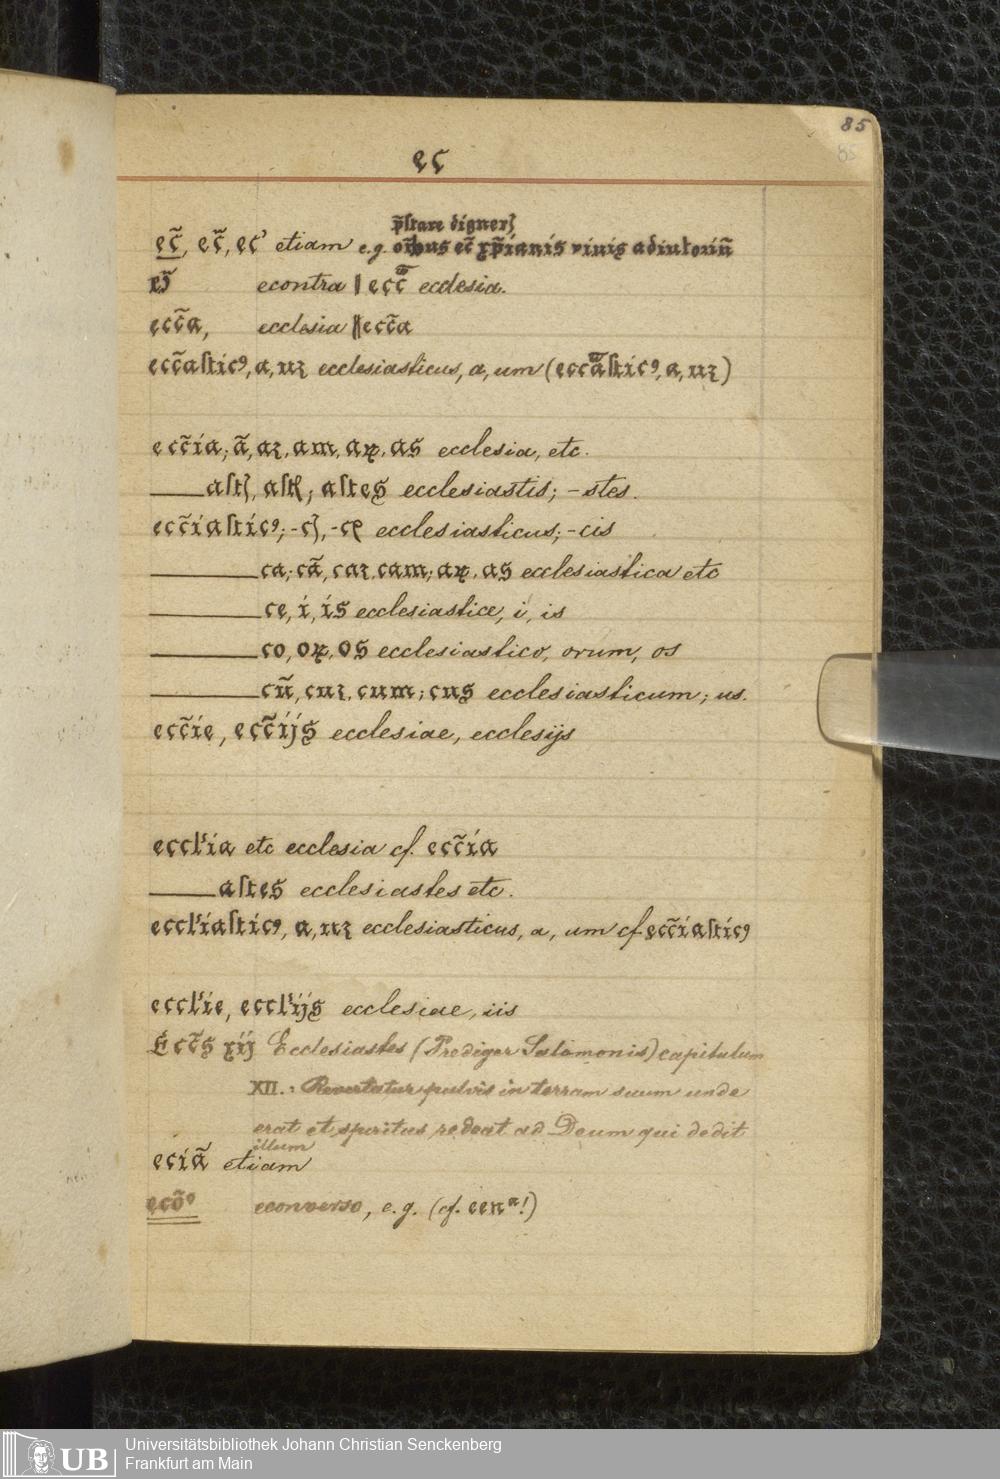 85
85
ec
p̃ſtare digner̃
ec̃, ec̃, ec' etiam e.g. oĩbus ec̃ xp̃ianis vinis adiutoriũ
econtra | ecc̃ ecclesia.
ecc̃a, ecclesia || ecc̃a
ecc̃aſticꝰ, a, uꝫ ecclesiasticus, a, um (ecc̃aſticꝰ, a, uꝫ)
ecc̃ia; ã, aꝫ, am, aꝝ, as ecclesia, etc.
——aſtes ecclesiastis; -stes.
ecc̃iaſticꝰ; ecclesiasticus; -cis
——ca; cã, caꝫ, cam; aꝝ, as ecclesiastica etc
——ce, i, is ecclesiastice, i, is
——co, oꝝ, os ecclesiastico, orum, os
——cũ, cuꝫ, cum; cus ecclesiasticum; us.
ecc̃ie, ecc̃ijs ecclesiae, ecclesijs
eccl'ia etc ecclesia cf. ecc̃ia
——aſtes ecclesiastes etc.
eccl'iaſticꝰ, a, uꝫ ecclesiasticus, a, um cf ecc̃iaſticꝰ
eccl'ie, eccl'ijs ecclesiae, iis
Ecc̃s xij Ecclesiastes (Prediger Salomonis) capitulum
XII.: Revertatur pulvis in terram suum unde
erat et spiritus redeat ad Deum qui dedit
illum
eciã etiam
ecõᵒ econverso, e.g. (cf. eenᵃ!)
UB
Universitätsbibliothek Johann Christian Senckenberg
Frankfurt am Main